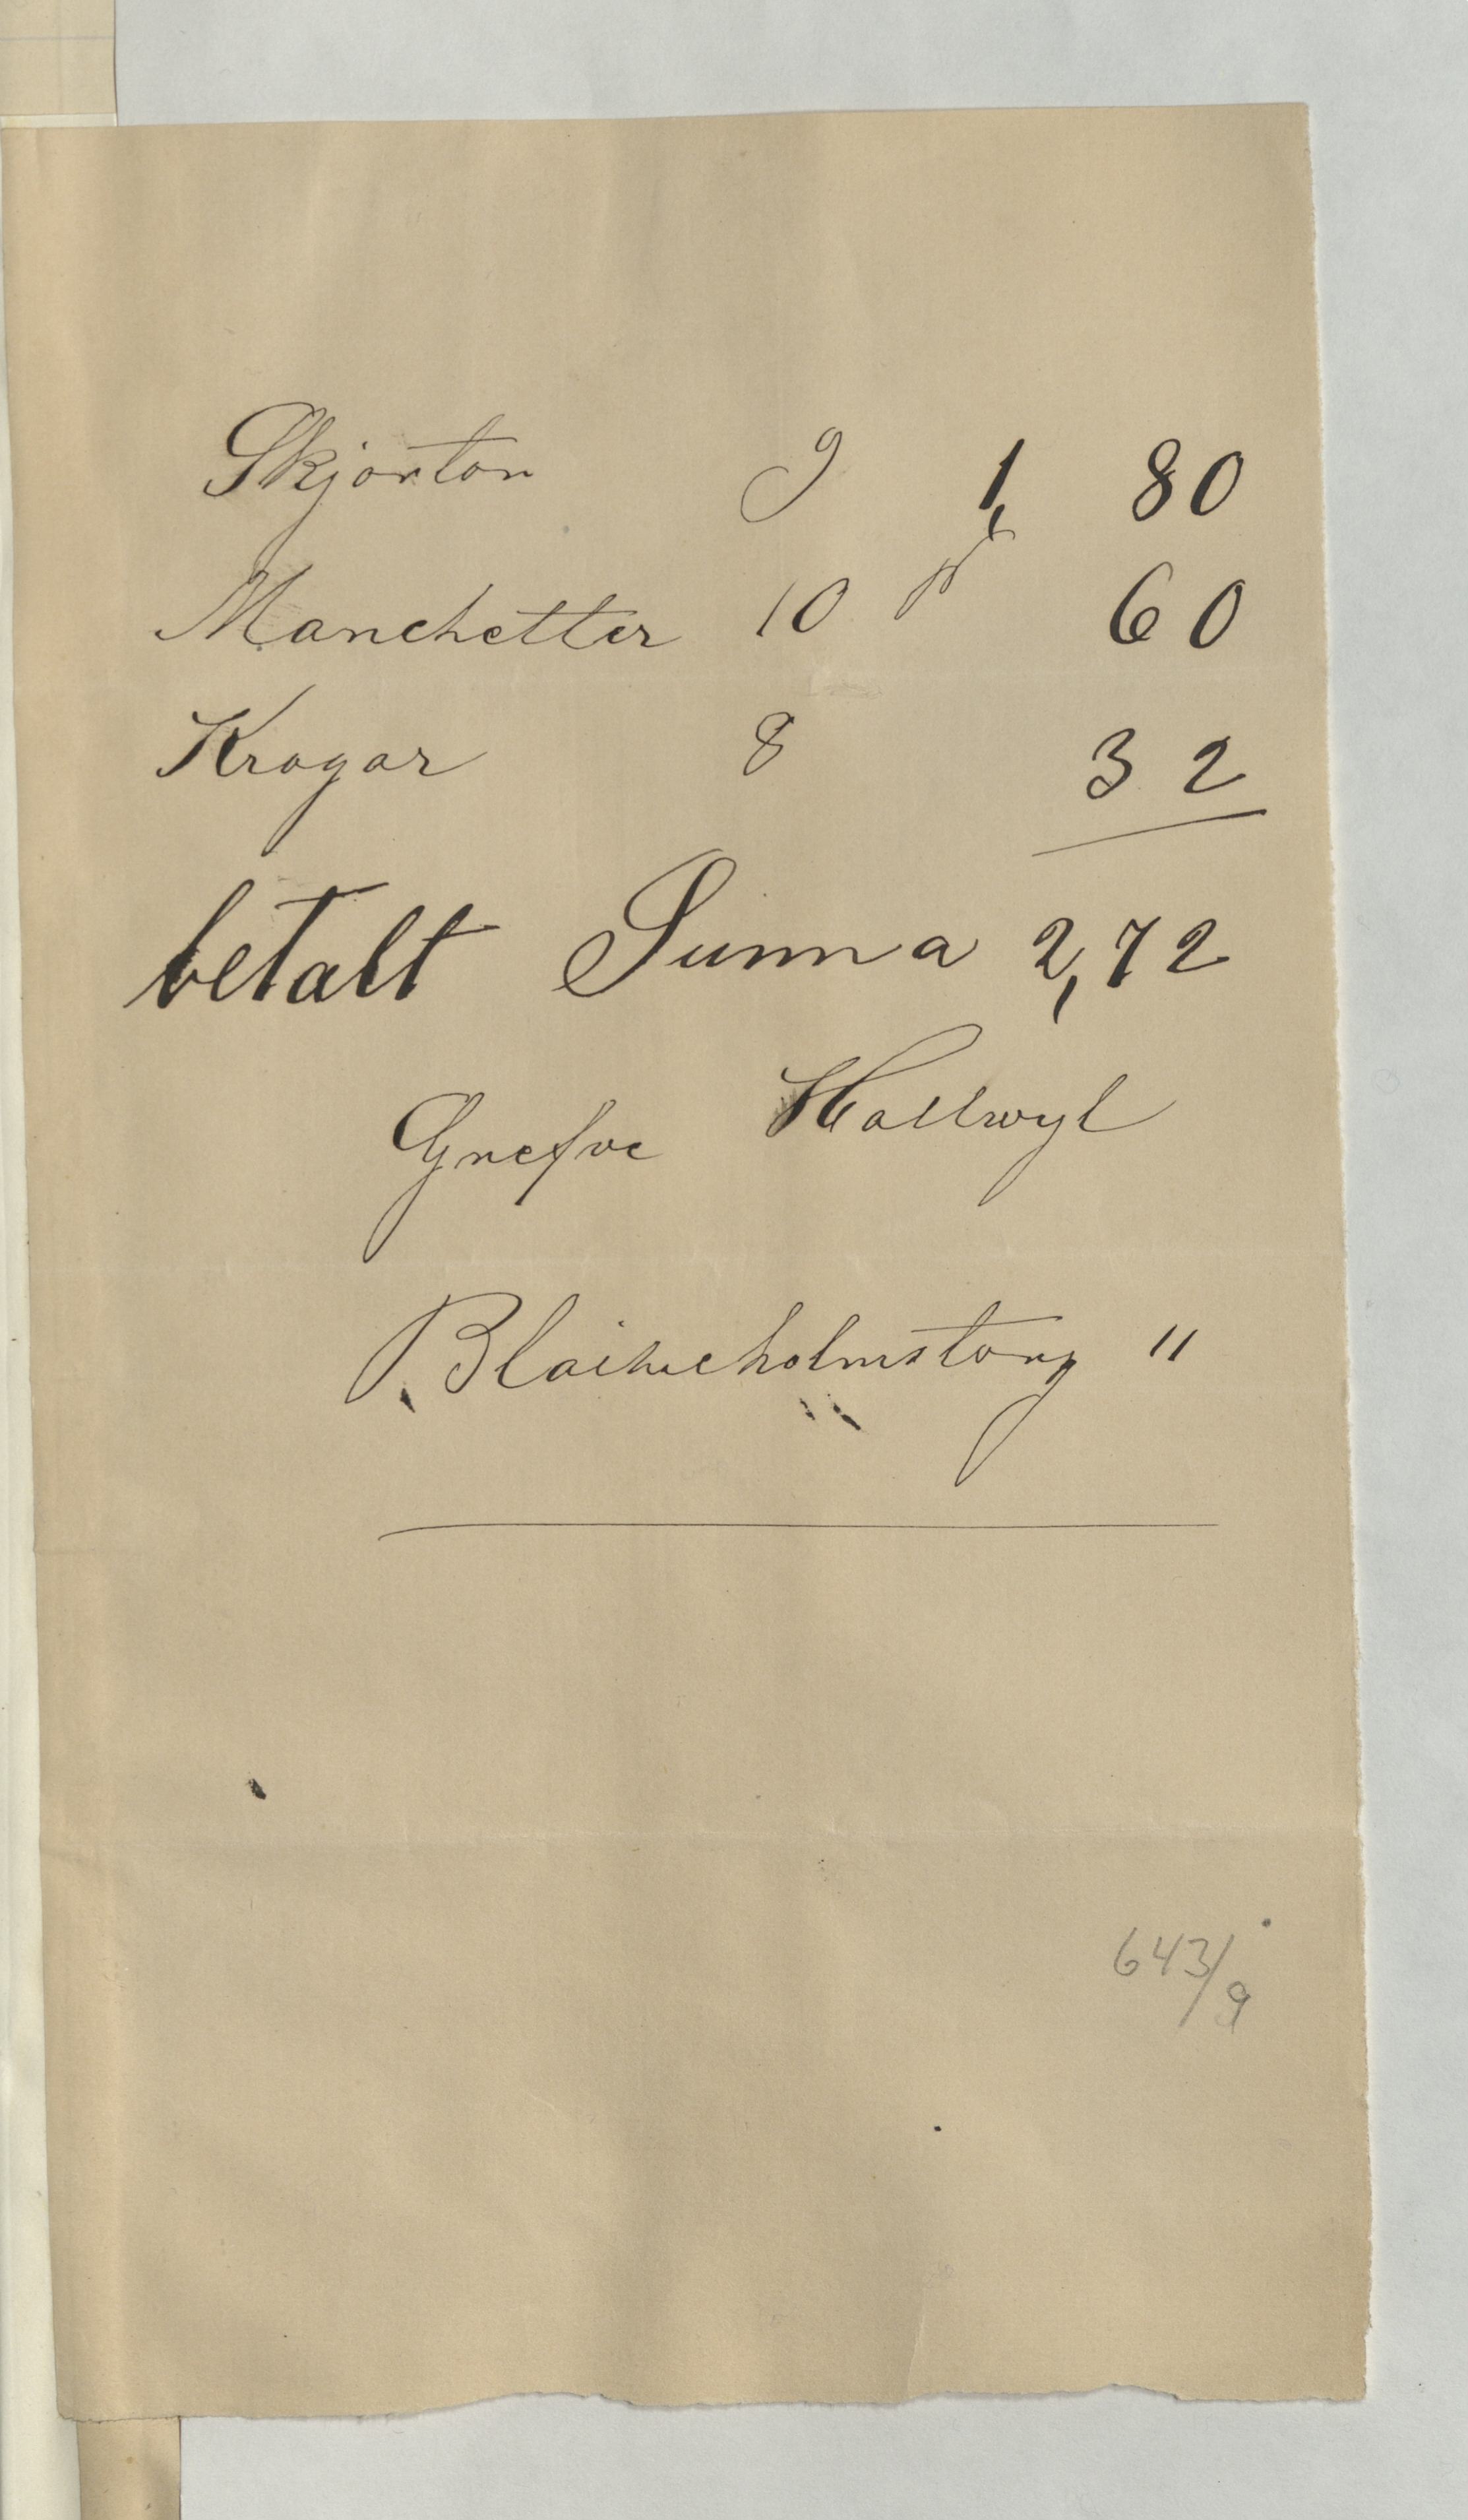 Skjorton 9 1, 80
Manchetter 10 pr 60
Kragar 8 32
betalt Summa 2,72
Grefve Hallwyl
Blaiseholmstorg "
643/9